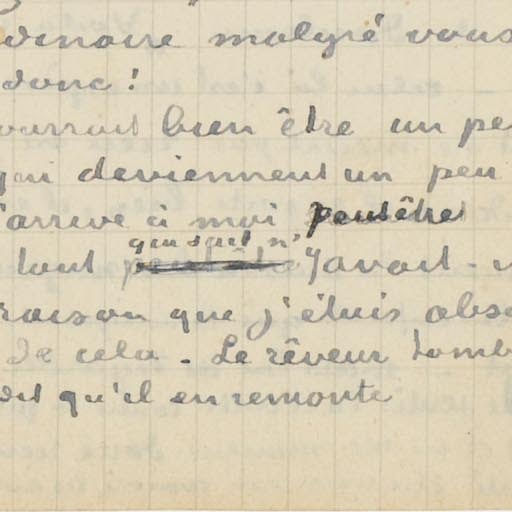 dinaire malgré vous
donc!
ourrait bien être un pe
qui deviennent un peu
j'arrive à moi peutêtre
qui sait n'
tout peutêtre y avait-
raison que j'étais abso
de cela - Le rêveur tomb
dit qu'il en remonte